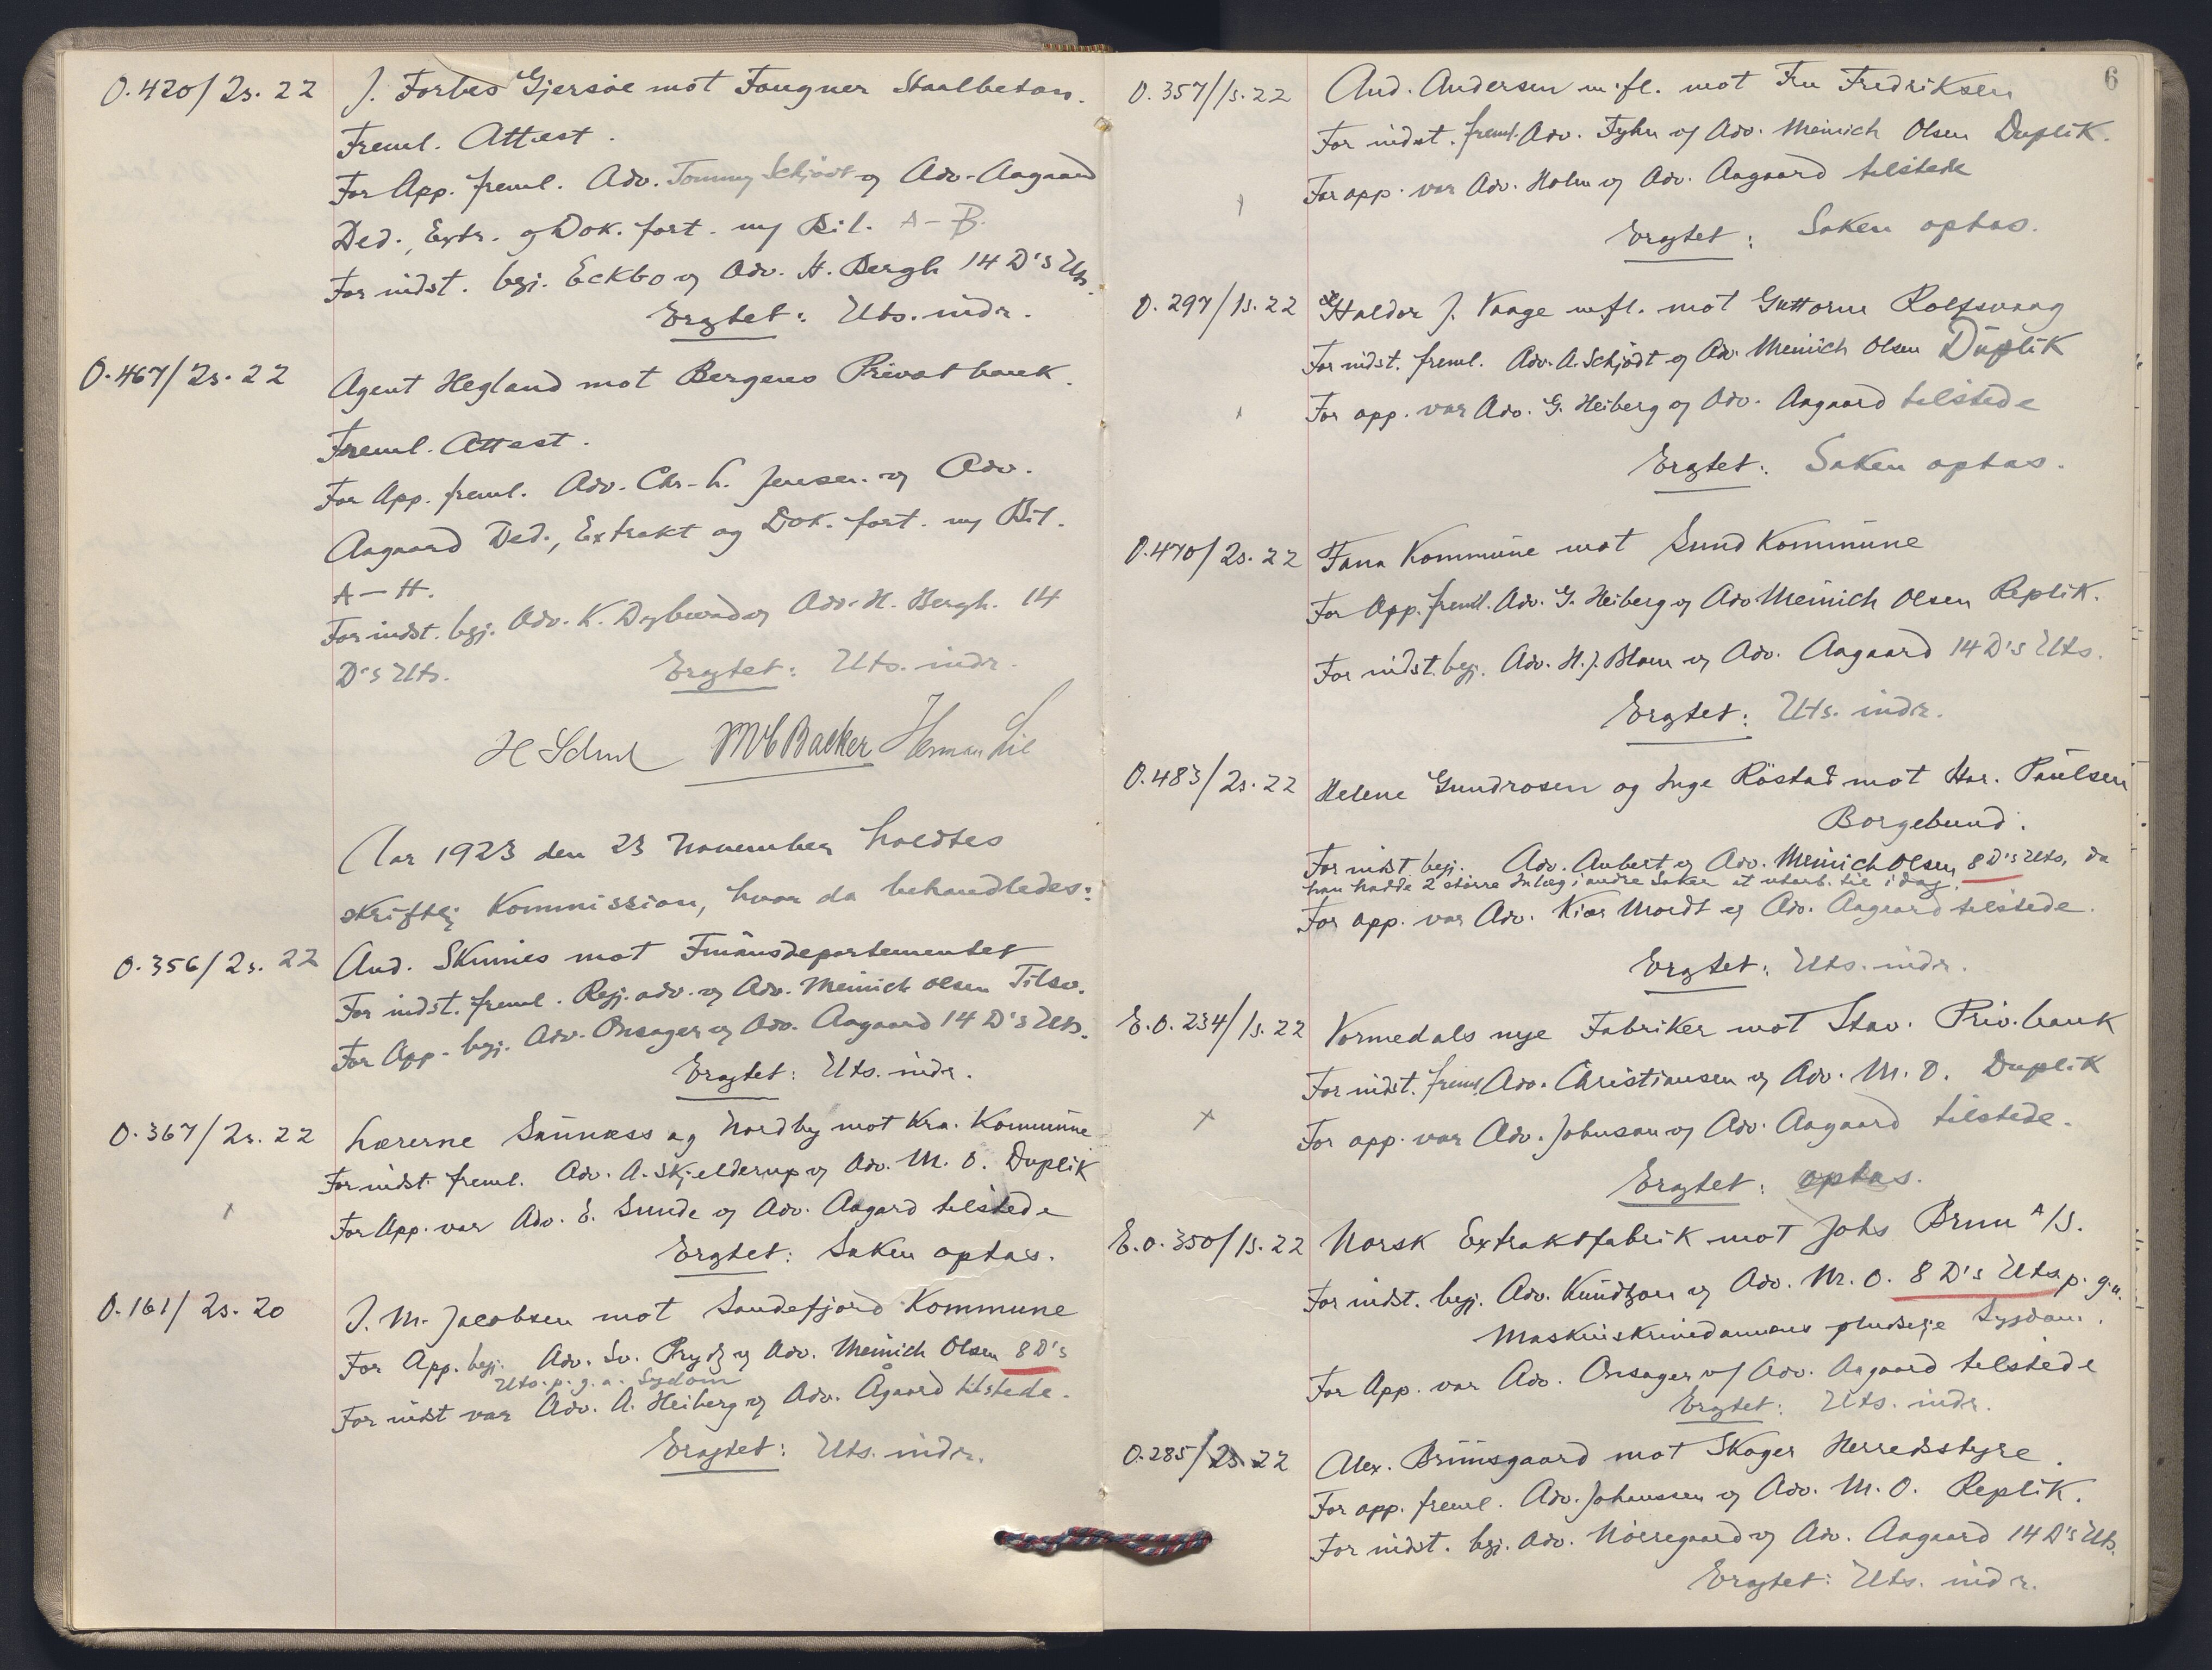 O. 420/2s. 22 J. Forbes Gjersøe mot Fougner Staalbeton.
Freml. Attest.
For App. freml. Adv. Tommy Schjødt og Adv. Aagaard
Ded., Extr. og Dok. fort. m/ Bil. A – B.
For indst. begj. Eckbo og Adv. H. Bergh 14 D's Uts.
Eragtet: Uts. indr.
O. 467/2s. 22 Agent Hegland mot Bergens Privatbank.
Freml. Attest.
For App. freml. Adv. Chr. L. Jensen og Adv.
Aagaard Ded., Extrakt og Dok. fort. m/ Bil.
A – H.
For indst. begj. Adv. K. Dybwad og Adv. H. Bergh. 14
D's Uts. Eragtet: Uts. indr.
MC Backer Herman Lie
Aar 1923 den 23 November holdtes
skriftlig Kommission, hvor da behandledes:
O. 356/2s. 22 And. Skumies mot Finansdepartementet
For indst. freml. Regj. adv. og Adv. Meinich Olsen Tilsv.
For App. begj. Adv. Onsager og Adv. Aagaard 14 D's Uts.
Eragtet: Uts. indr.
O. 367/2s. 22 Lærerne Sannæss og Nordby mot Kra. Kommune
For indst. freml. Adv. A. Skjelderup og Adv. M. O. Duplik
For App. var Adv. E. Sunde og Adv. Aagard tilstede
Eragtet: Saken optas.
O. 161/2s. 20 J. M. Jacobsen mot Sandefjord Kommune
For App. begj. Adv. Sv. Prydz og Adv. Meinich Olsen 8 D's
Uts. p. g. a. Sydom
For indst var Adv. A. Heiberg og Adv. Ågaard tilstede.
Eragtet: Uts. indr.
6
O. 357/1s. 22 And. Andersen m. fl. mot Fru Fredriksen
For indst. freml. Adv. Fyhn og Adv. Meinich Olsen Duplik.
For app. var Adv. Holm og Adv. Aagaard tilstede
Eragtet: Saken optas.
O. 297/1s. 22 Haldor J. Vaage mfl. mot Guttorm Rolfsvaag
For indst. freml. Adv. A. Schjødt og Adv. Meinich Olsen Duplik
For app. var Adv. G. Heiberg og Adv. Aagaard tilstede
Eragtet: Saken optas.
O. 470/2s. 22 Fana Kommune mot Sund Kommune
For App. freml. Adv. G. Heiberg og Adv Meinich Olsen Replik.
For indst. begj. Adv. H. J. Blom og Adv. Aagaard 14 D's Uts.
Eragtet: Uts. indr.
O. 483/2s. 22 Helene Gundrosen og Inge Røstad mot Har. Paulsen
Borgebund.
For indst. begj. Adv. Aubert og Adv. Meinich Olsen 8 D's Uts, da
han hadde 2 større Inlæg i andre Saker at utarb. til i dag.
For app. var Adv. Kiær Mordt og Adv. Aagaard tilstede.
Eragtet: Uts. indr.
E. O. 234/1s. 22 Vormedals nye Fabriker mot Stav. Priv. bank
For indst. freml. Adv. Christiansen og Adv. M. O. Duplik
For app. var Adv. Johnson og Adv. Aagaard tilstede.
Eragtet: optas.
E. O. 350/1s. 22 Norsk Extraktfabrik mot Johs Brun A/S.
For indst. begj. Adv. Kundtzon og Adv. M. O. 8 D's Uts p. g. a.
Maskinskrivedamens pludselige Sygdom.
For App. var Adv. Onsager og Adv. Aagaard tilstede
Eragtet: Uts. indr.
O. 285/2s. 22 Alex. Brunsgaard mot Skoger Herredsstyre.
For app. freml. Adv. Johanssen og Adv. M. O. Replik.
For indst. begj. Adv. Nørregaard og Adv. Aagaard 14 D's Uts.
Eragtet: Uts. indr.